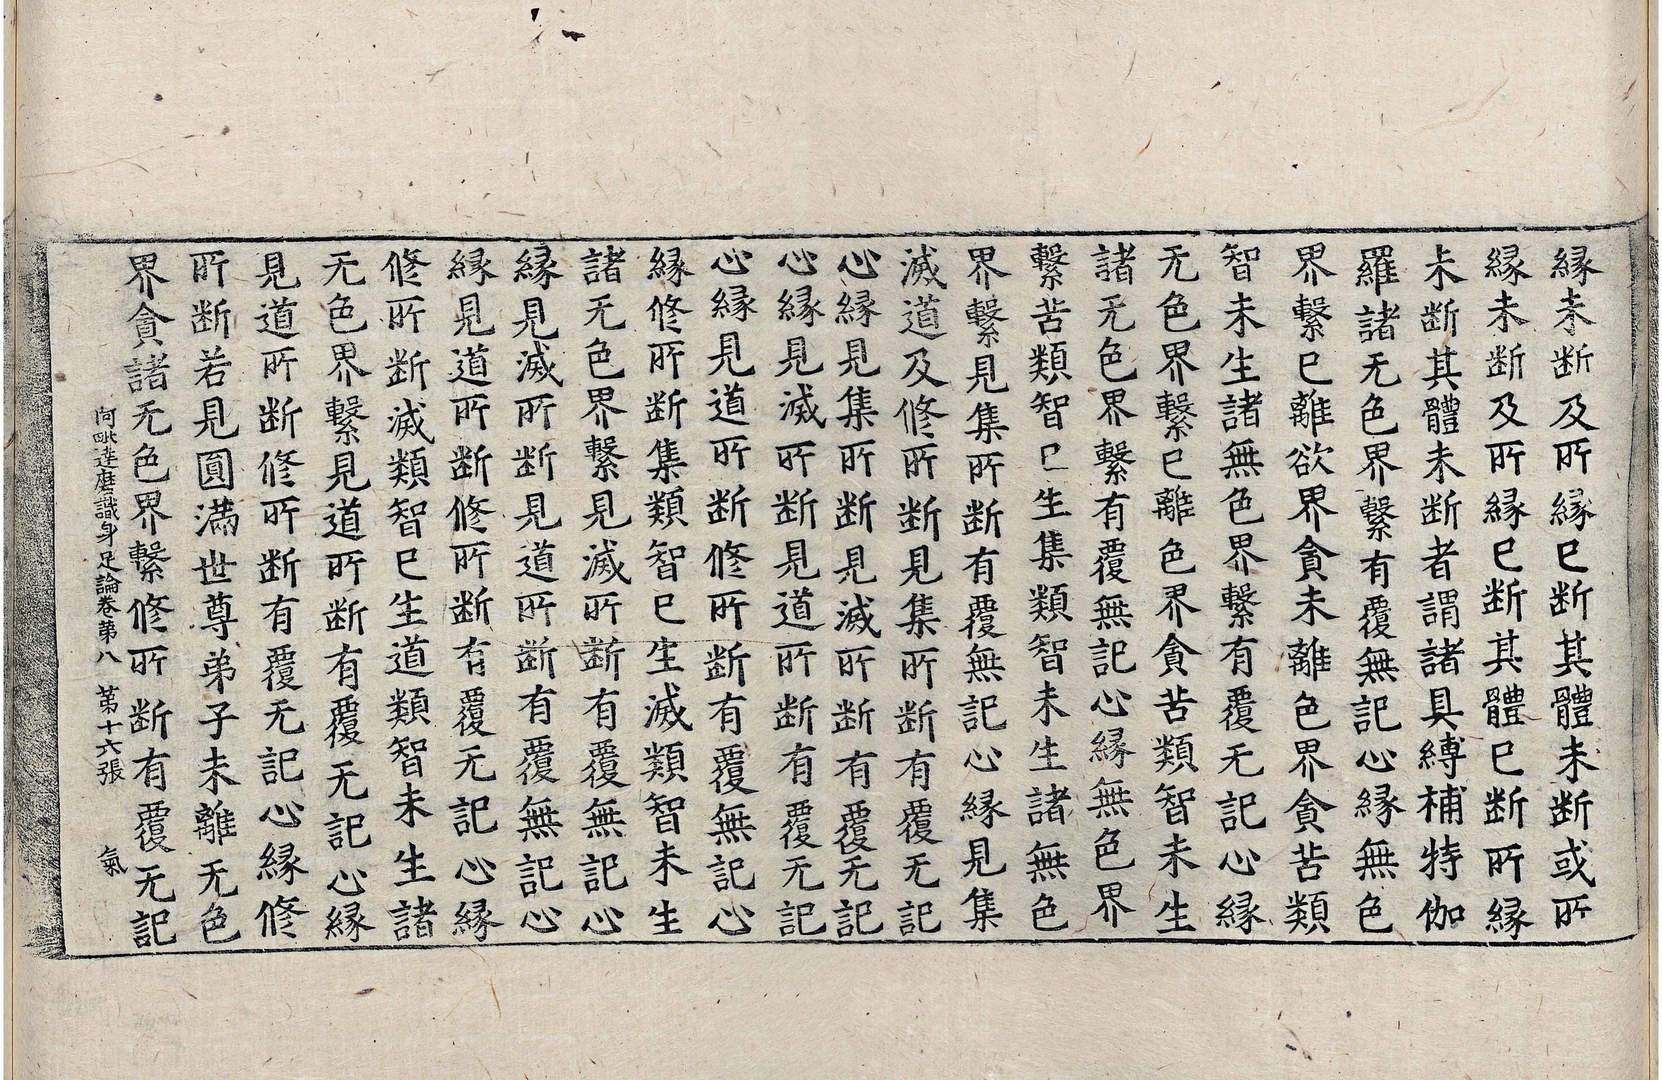 緣未断及所縁已断其體未断或所
縁未断及所縁已断其體已断所縁
未断其體未断者謂諸具縛補特伽
羅諸无色界繫有覆無記心縁無色
界繫已離欲界貪未離色界貪苦類
智未生諸無色界繫有覆无記心縁
无色界繫已離色界貪苦類智未生
諸无色界繫有覆無記心縁無色界
繫苦類智已生集類智未生諸無色
界繫見集所断有覆無記心縁見集
滅道及修所断見集所断有覆无記
心縁見集所断見滅所断有覆无記
心縁見滅所断見道所断有覆无記
心縁見道所断修所断有覆無記心
縁修所断集類智已生滅類智未生
諸无色界繫見滅所断有覆無記心
縁見滅所断見道所断有覆無記心
縁見道所断修所断有覆无記心縁
修所断滅類智已生道類智未生諸
无色界繫見道所断有覆无記心縁
見道所断修所断有覆无記心縁修
所断若見圓滿世尊弟子未離无色
界貪諸无色界繫修所断有覆无記
阿毗達磨識身足論卷第八　第十六張　氣